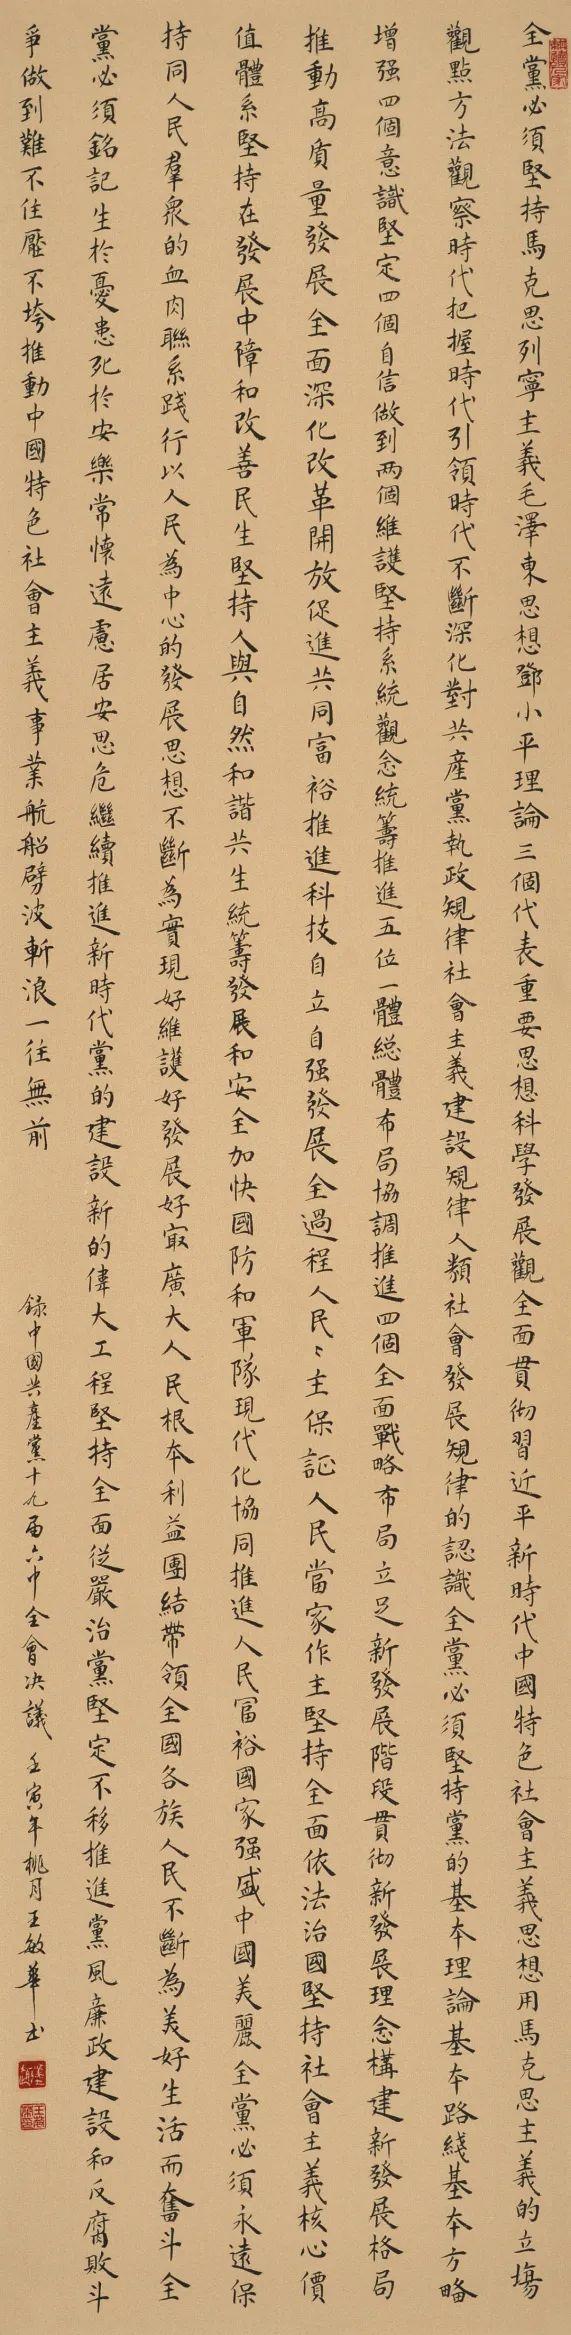 全黨必須堅持馬克思列寧主義毛澤東思想鄧小平理論三個代表重要思想科學發展觀全面貫彻習近平新時代中國特色社會主義思想用馬克思主義的立場
觀點方法觀察時代把握時代引領時代不斷深化對共產黨執政規律社會主義建設規律人類社會發展規律的認識全黨必須堅持黨的基本理論基本路綫基本方略
增强四個意識堅定四個自信做到两個維護堅持系統觀念統籌推進五位一體總體布局協調推進四個全面戰略布局立足新發展階段貫彻新發展理念構建新發展格局
推動高质量發展全面深化改革開放促進共同富裕推進科技自立自强發展全過程人民〻主保証人民當家作主堅持全面依法治國堅持社會主義核心價
值體系堅持在發展中障和改善民生堅持人與自然和諧共生統籌發展和安全加快國防和軍隊現代化協同推進人民冨裕國家强盛中國美麗全黨必須永遠保
持同人民羣衆的血肉聯系踐行以人民為中心的發展思想不斷為實現好維護好發展好㝡廣大人民根本利益團結帶領全國各族人民不斷為美好生活而奮斗全
黨必須銘記生於憂患死於安樂常懷遠慮居安思危繼續推進新時代黨的建設新的偉大工程堅持全面從嚴治黨堅定不移推進黨風廉政建設和反腐敗斗
爭做到難不住壓不垮推動中國特色社會主義事業航船劈波斬浪一往無前
録中國共產黨十九届六中全會决議 壬寅年桃月王敏華书